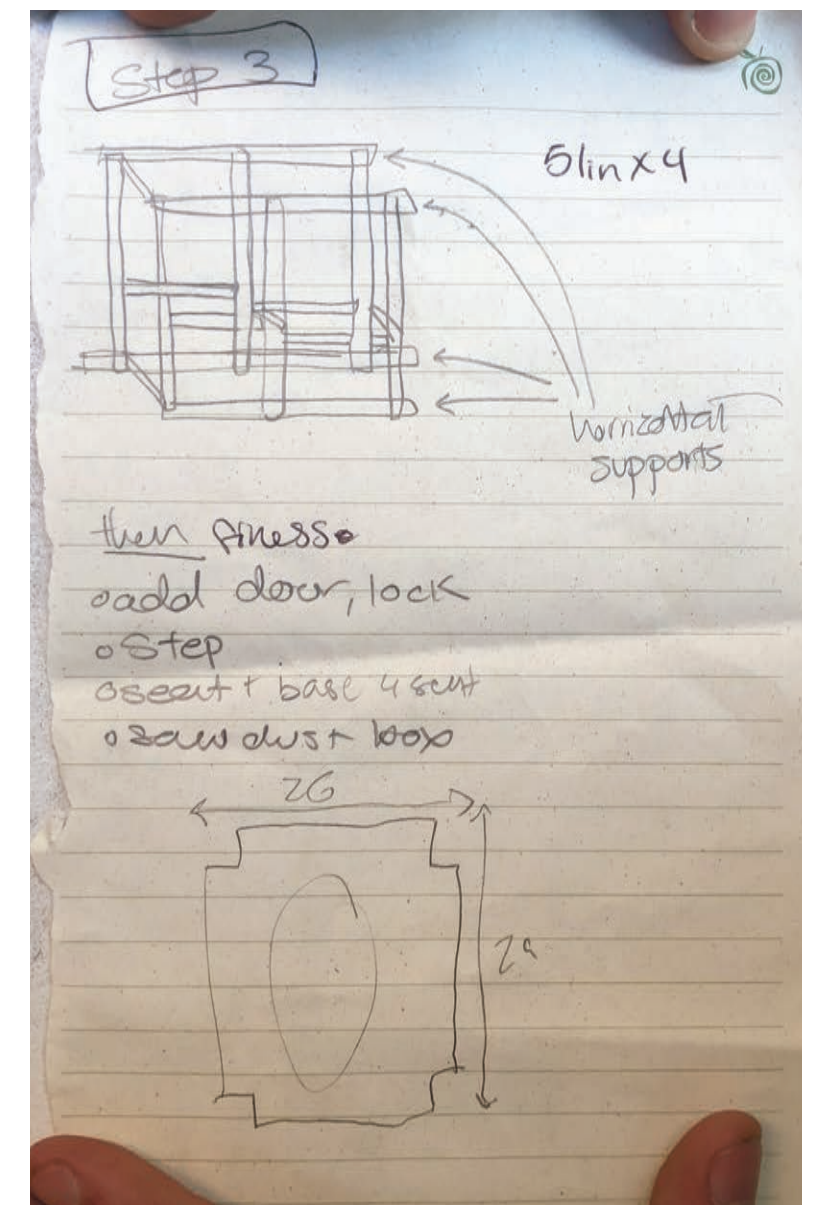 Step 3
51in x 4
horrizontal
supports
then finesse
add door, lock
Step
seat + base 4 seat
sawdust box
26
29